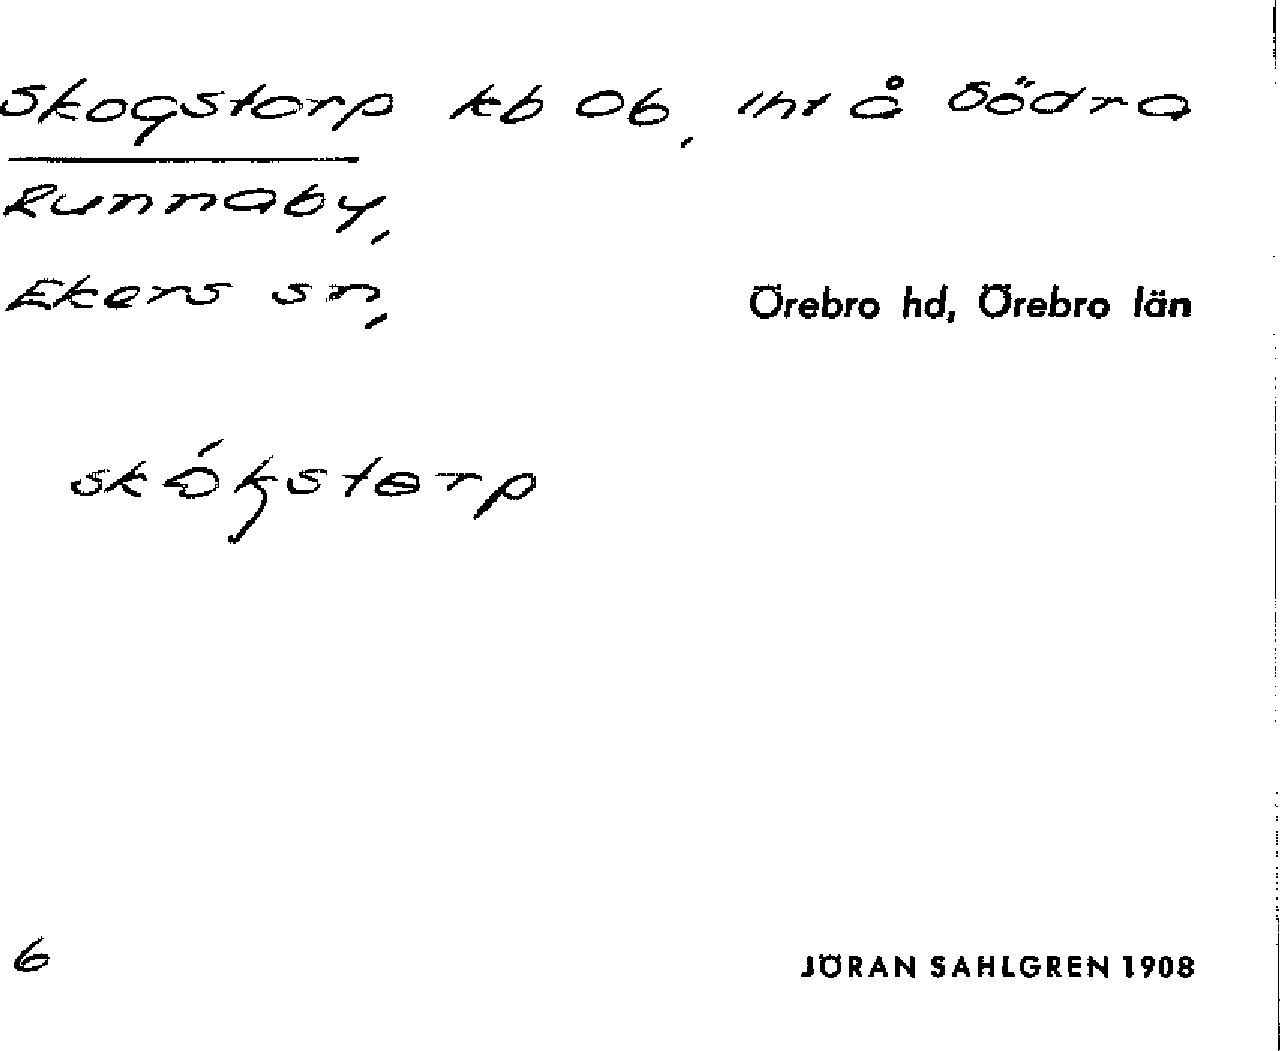 Skogstorp kb Ob, int å Södra
Runnaby,
Ekers sn, Örebro hd, Örebro län
skókstɵrp
6 JÖRAN SAHLGREN 1908